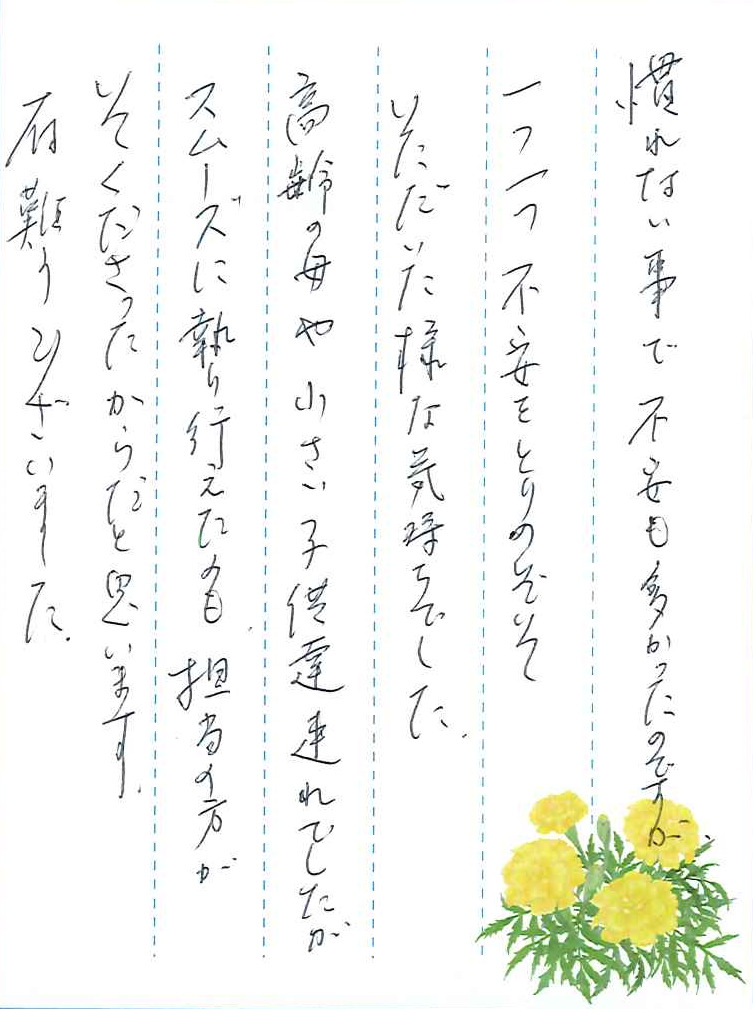 慣れない事で不安も多かったのですが、
一つ一つ不安をとりのぞいて
いただいた様な気持ちでした。
高齢の母や小さい子供達連れでしたが
スムーズに執り行えたのも、担当の方が
いてくださったからだと思います。
有難うございました。